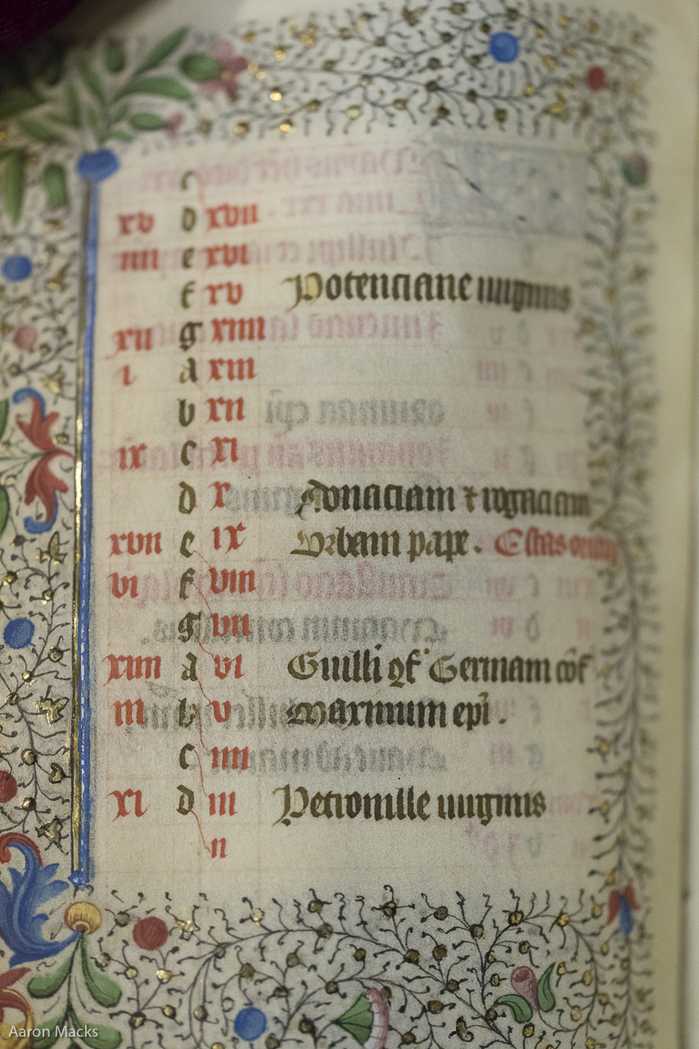 c
xv d xvii
iiii e xvi
f xv Potenciane uirginis
xii g xiiii
i a xiii
b xii
ix c xi
d x donaciani & rogaciani
xvii e ix Urbani pape. Estas oritur
vi f viii
g vii
xiiii a vi Guilli gf Germani cof
iii b v maximini epi.
c iiii
xi d iii Petronille uirginis
ii
Aaron Macks